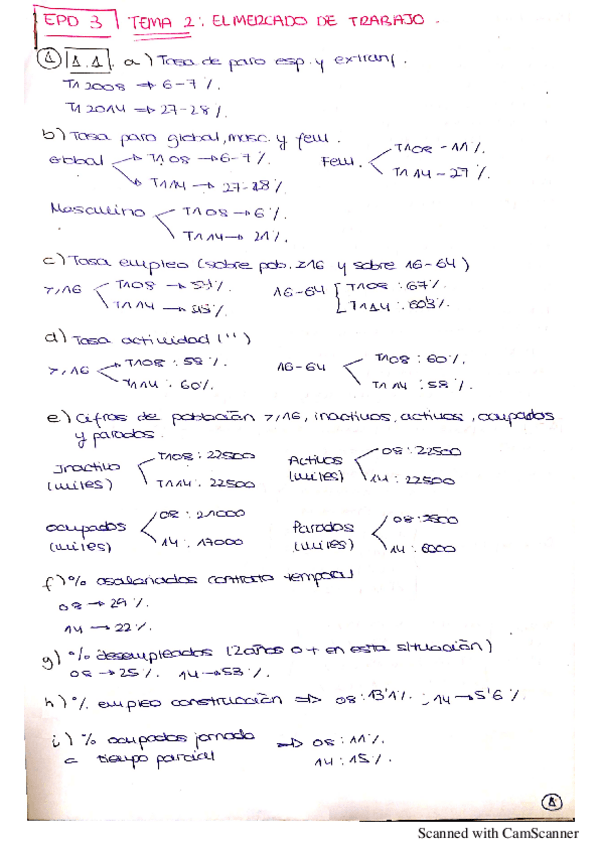 EPD 3 TEMA 2: EL MERCADO DE TRABAJO.
① 1.1. a) Tasa de paro esp. y extranj.
T1 2008 => 6-7 %.
T1 2014 => 27-28 %.
b) Tasa paro global, masc. y fem.
Global T1 08 → 6-7 %. Fem. T1 08 - 11 %.
T1 14 → 27-28 %. T1 14 - 27 %.
Masculino T1 08 → 6 %.
T1 14 → 21 %.
c) Tasa empleo (sobre pob. ≥16 y sobre 16-64)
≥16 T1 08 → 54 %. 16-64 T1 08 : 67 %.
T1 14 → 45 %. T1 14 : 60'3 %.
d) Tasa actividad ('')
≥16 T1 08 : 58 %. 16-64 T1 08 : 60 %.
T1 14 : 60 %. T1 14 : 58 %.
e) Cifras de población ≥16, inactivos, activos, ocupados
y parados.
Inactivo T1 08 : 22500 Activos 08 : 22500
(miles) T1 14 : 22500 (miles) 14 : 22500
Ocupados 08 : 21000 Parados 08 : 2500
(miles) 14 : 17000 (miles) 14 : 6000
f) % asalariados contrato temporal
08 → 29 %.
14 → 22 %.
g) % desempleados (2 años o + en esta situación)
08 → 25 %. 14 → 53 %.
h) % empleo construcción => 08 : 13'1 %. ; 14 → 5'6 %.
i) % ocupados jornada => 08 : 11 %.
a tiempo parcial 14 : 15 %.
Scanned with CamScanner